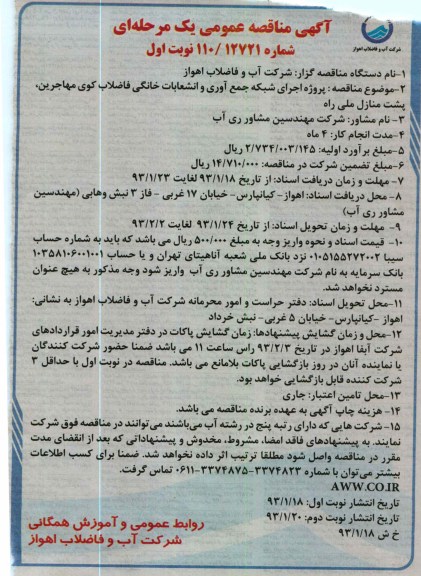 آگهی مناقصه عمومی یک مرحله‌ای
شماره ۱۲۷۲۱/ ۱۱۰ نوبت اول
شرکت آب و فاضلاب اهواز
۱-نام دستگاه مناقصه گزار: شرکت آب و فاضلاب اهواز
۲-موضوع مناقصه : پروژه اجرای شبکه جمع آوری و انشعابات خانگی فاضلاب کوی مهاجرین،
پشت منازل ملی راه
۳- نام مشاور: شرکت مهندسین مشاور ری آب
۴-مدت انجام کار: ۴ ماه
۵-مبلغ برآورد اولیه: ۲/۷۳۴/۰۰۳/۱۴۵ ریال
۶-مبلغ تضمین شرکت در مناقصه: ۱۴/۷۱۰/۰۰۰ ریال
۷- مهلت و زمان دریافت اسناد: از تاریخ ۹۳/۱/۱۸ لغایت ۹۳/۱/۲۳
۸- محل دریافت اسناد: اهواز- کیانپارس- خیابان ۱۷ غربی - فاز ۳ نبش وهابی (مهندسین
مشاور ری آب)
۹- مهلت و زمان تحویل اسناد: از تاریخ ۹۳/۱/۲۴ لغایت ۹۳/۲/۲
۱۰- قیمت اسناد و نحوه واریز وجه به مبلغ ۵۰۰/۰۰۰ ریال می باشد که باید به شماره حساب
سیبا ۰۱۰۵۱۵۵۲۷۲۰۰۲ نزد بانک ملی شعبه آناهیتای تهران و یا حساب ۱۰۳۵۸۱۰۶۰۰۱۰۰۱
بانک سرمایه به نام شرکت مهندسین مشاور ری آب واریز شود وجه مذکور به هیچ عنوان
مسترد نخواهد شد.
۱۱-محل تحویل اسناد: دفتر حراست و امور محرمانه شرکت آب و فاضلاب اهواز به نشانی:
اهواز -کیانپارس- خیابان ۵ غربی- نبش خرداد
۱۲-محل و زمان گشایش پیشنهادها: زمان گشایش پاکات در دفتر مدیریت امور قراردادهای
شرکت آبفا اهواز در تاریخ ۹۳/۲/۳ راس ساعت ۱۱ می باشد ضمنا حضور شرکت کنندگان
یا نماینده آنان در روز بازگشایی پاکات بلامانع می باشد. مناقصه در نوبت اول با حداقل ۳
شرکت کننده قابل بازگشایی خواهد بود.
۱۳-محل تامین اعتبار: جاری
۱۴- هزینه چاپ آگهی به عهده برنده مناقصه می باشد.
۱۵- شرکت هایی که دارای رتبه پنج در رشته آب می‌باشند می‌توانند در مناقصه فوق شرکت
نمایند. به پیشنهادهای فاقد امضا، مشروط، مخدوش و پیشنهاداتی که بعد از انقضای مدت
مقرر در مناقصه واصل شود مطلقا ترتیب اثر داده نخواهد شد. ضمنا برای کسب اطلاعات
بیشتر می‌توان با شماره ۳۳۷۴۸۲۳-۳۳۷۴۸۷۵-۰۶۱۱ تماس گرفت.
AWW.CO.IR
تاریخ انتشار نوبت اول: ۹۳/۱/۱۸
تاریخ انتشار نوبت دوم: ۹۳/۱/۲۰
خ ش ۹۳/۱/۱۸
روابط عمومی و آموزش همگانی
شرکت آب و فاضلاب اهواز